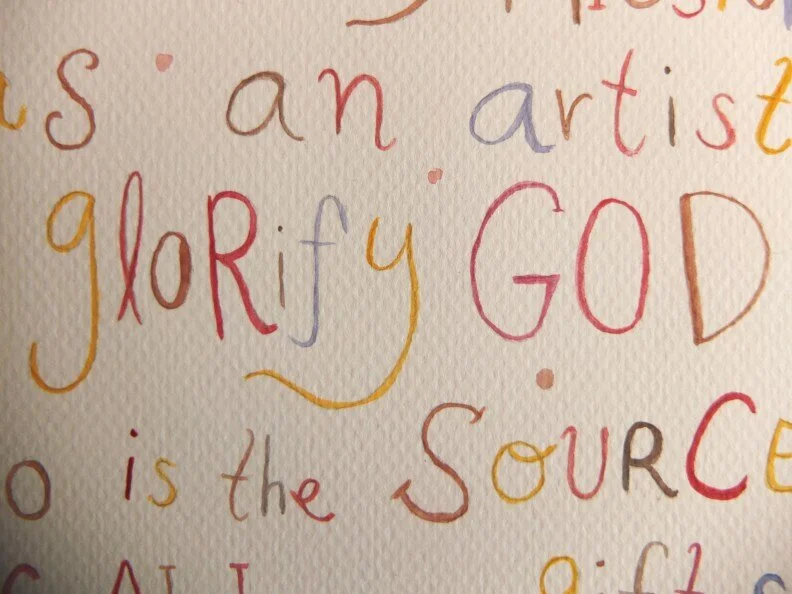 as an artist
gloRify GOD
is the SOURCE
ALL gifts